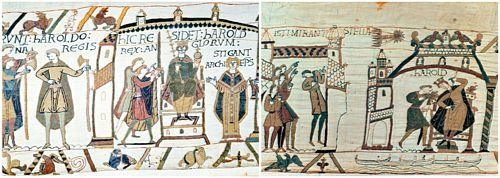 VNT: hAROLDO: hIC RE SIDET: hAROLD
NA REGIS REX: AN GLORVM:
STIGANT
ARChI EPS
ISTI MIRANT STELLA
hAROLD